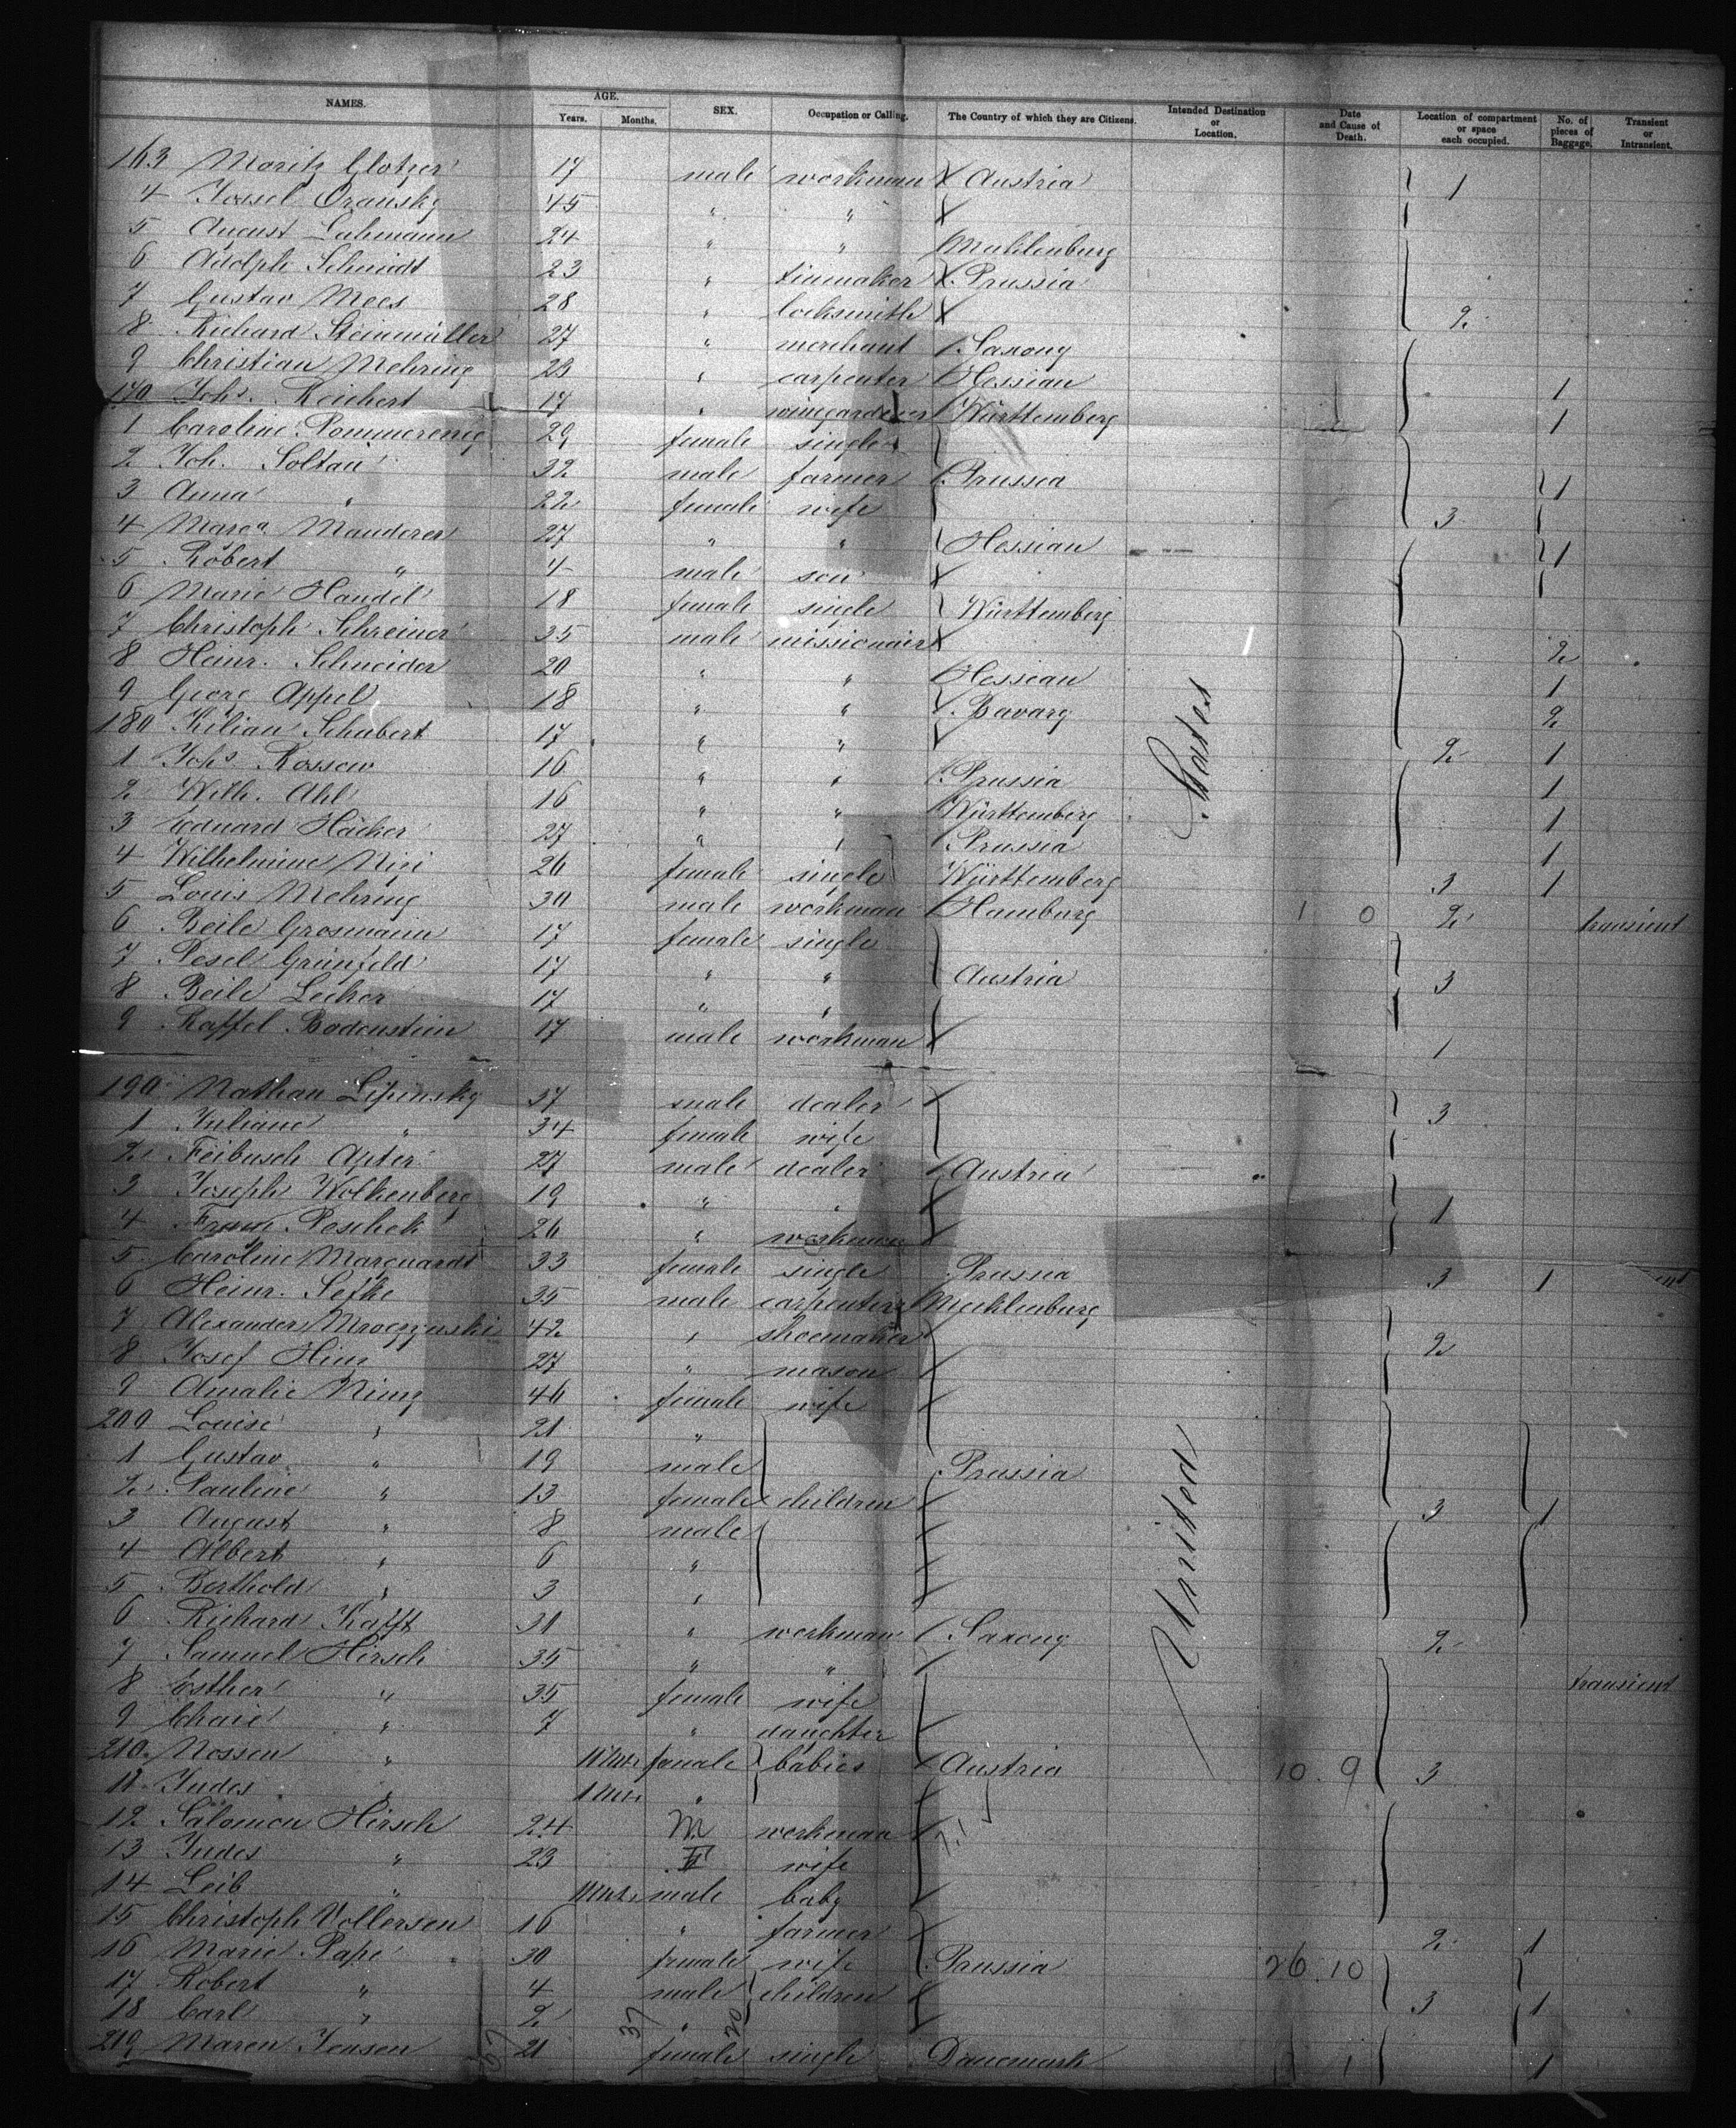 NAMES. AGE. Years. Months. SEX. Occupation or Calling. The Country of which they are Citizens. Intended Destination or Location. Date and Cause of Death. Location of compartment or space each occupied. No. of pieces of Baggage. Transient or Intransient.
163 Moritz Glotzer 17 male workman Austria 1
4 Jossel Oransky 45 " "
5 August Lahmann 24 " " Mecklenburg
6 Adolph Schmidt 23 " tinmaker Prussia
7 Gustav Mees 28 " locksmith 2
8 Richard Steinmüller 27 " merchant Saxony
9 Christian Mehring 23 " carpenter Hessian 1
170 Johs. Reichert 17 " winegardener Württemberg 1
1 Caroline Pommerenig 29 female single
2 Joh. Soltau 32 male farmer Prussia 1
3 Anna " 22 female wife 3
4 Marga Manderer 27 " " Hessian 1
5 Robert " 4 male son
6 Marie Handel 18 female single Württemberg
7 Christoph Schreiner 35 male missionair 2
8 Heinr. Schneider 20 " " Hessian 1
9 Georg Appel 18 " " Bavary 2
180 Kilian Schubert 17 " " 2 1
1 Johs Rossow 16 " " Prussia 1
2 Wilh. Ahl 16 " " Württemberg 1
3 Eduard Häcker 27 " " Prussia 1
4 Wilhelmine Niri 26 female single Württemberg 3 1
5 Louis Mehring 30 male workman Hamburg 1 0 2 transient
6 Beile Grosmann 17 female single
7 Pesel Grünfeld 17 " " Austria 3
8 Beile Lecker 17 " "
9 Raffel Badenstein 17 male workman 1
190 Nathan Lipinsky 37 male dealer 3
1 Juliane " 34 female wife
2 Feibusch Apter 27 male dealer Austria
3 Joseph Wolkenberg 19 " " 1
4 Franz Peschek 26 " workman
5 Caroline Marquardt 33 female single Prussia 3 1
6 Heinr. Sefke 35 male carpenter Mecklenburg
7 Alexander Mroczynski 42 " shoemaker 2
8 Josef Hinz 27 " mason
9 Amalie Ning 46 female wife
200 Louise " 21 "
1 Gustav " 19 male Prussia
2 Pauline " 13 female children 3 1
3 August " 8 male
4 Albert " 6 "
5 Berthold " 3 "
6 Richard Kafft 31 " workman Saxony 2
7 Samuel Hirsch 35 " "
8 Esther " 35 female wife transient
9 Chaie " 7 " daughter
210 Nossen " 11 Mts. female babies Austria 10 9 3
11 Judes " 1 Mt. "
12 Salomon Hirsch 24 M workman
13 Judes " 23 F wife
14 Leib " 11 Mts. male baby
15 Christoph Vollersen 16 " farmer 2 1
16 Marie Pape 30 female wife Prussia 26 10
17 Robert " 4 male children 3 1
18 Carl " 2 "
219 Maren Jensen 21 female single Danemark 1 1
United States
37 20